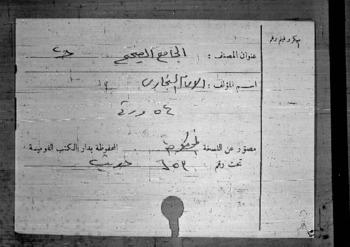 ميكروفيلم رقم
عنوان المصنف : الجامع الصحيح
اسم المؤلف : الامام البخارى
٥٤ ورقة
مصور عن النسخة المحفوظة بدار الكتب القومية
تحت رقم : ٦٥٣ حديث